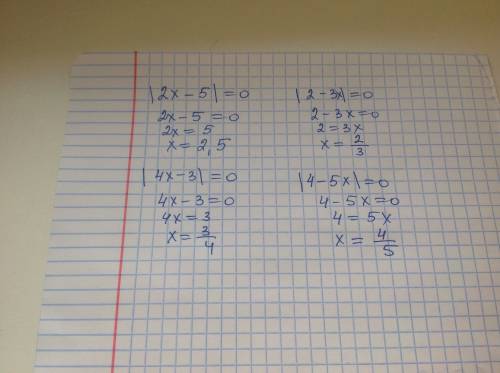 |2x-5|=0
2x-5=0
2x=5
x=2,5
|2-3x|=0
2-3x=0
2=3x
x=2/3
|4x-3|=0
4x-3=0
4x=3
x=3/4
|4-5x|=0
4-5x=0
4=5x
x=4/5